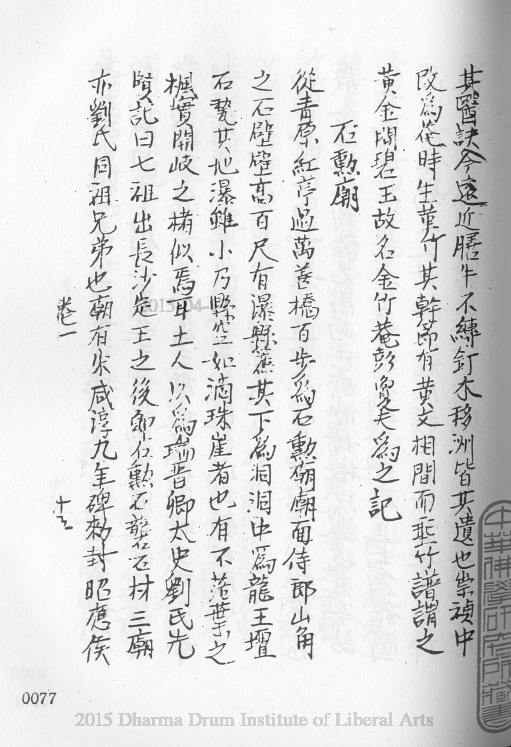 其醫訣今遠近膳牛不練釘木移洲皆其遺也崇禎中
改為庵時生黃竹其幹節有黃文相間而
竹譜謂之
黃金間碧玉故名金竹菴彭夔夫為之記
石勲廟
從青原紅葶過萬善橋百步為石勲廟廟面侍郎山角
之石壁壁高百尺有瀑懸
其下為洞洞中為龍王壇
石甃其
瀑雖小乃縣空如滴珠崖者也有不
葉之
楓實開岐之楮似焉耳土人以為瑞晋卿太史劉氏先
賢記曰七祖出長沙定王之後
石勲石
石材三廟
亦劉氏同祖兄弟也廟有宋咸淳九年碑勅封昭應侯
卷一
十三
0077
2015-04-
2015 Dharma Drum Institute of Liberal Arts
中華佛學研究所藏書